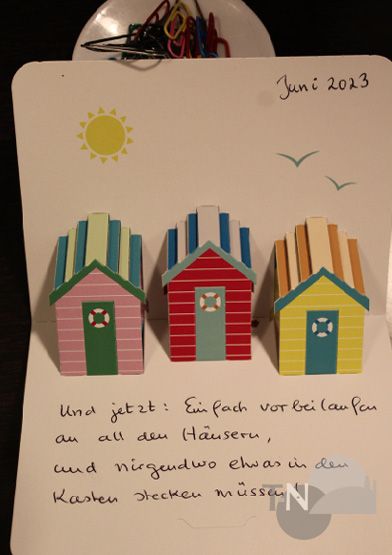 Juni 2023
Und jetzt: Einfach vorbeilaufen
an all den Häusern,
und nirgendwo etwas in den
Kasten stecken müssen!
TN